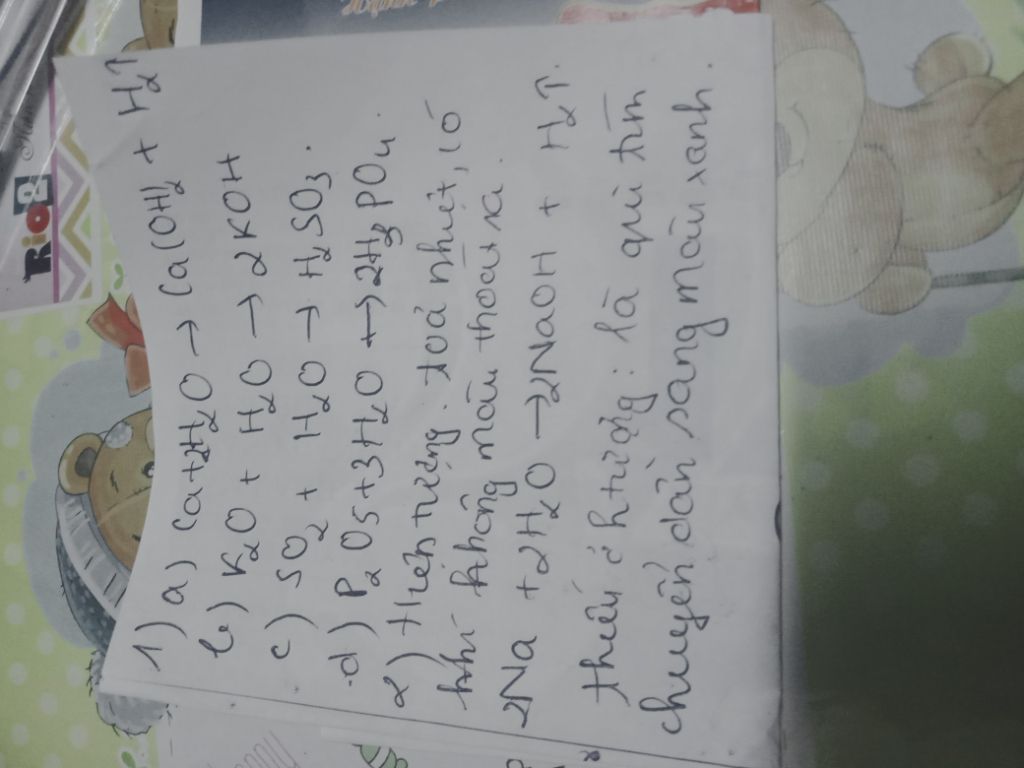 1) a) Ca+2H₂O → Ca(OH)₂ + H₂↑
b) K₂O + H₂O → 2KOH
c) SO₂ + H₂O → H₂SO₃.
d) P₂O₅+3H₂O → 2H₃PO₄.
2) Hiện tượng. toả nhiệt, có
khí không màu thoát ra.
2Na + 2H₂O → 2NaOH + H₂↑.
thiếu ở htượng: là quì tím
chuyển dần sang màu xanh.
Rio